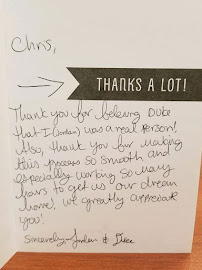 Chris,
THANKS A LOT!
Thank you for believing Duke
that I (Jordan) was a real person!
Also, thank you for making
this process so smooth and
especially working so many
hours to get us our dream
home, we greatly appreciate
you!
Sincerely - Jordan & Duke